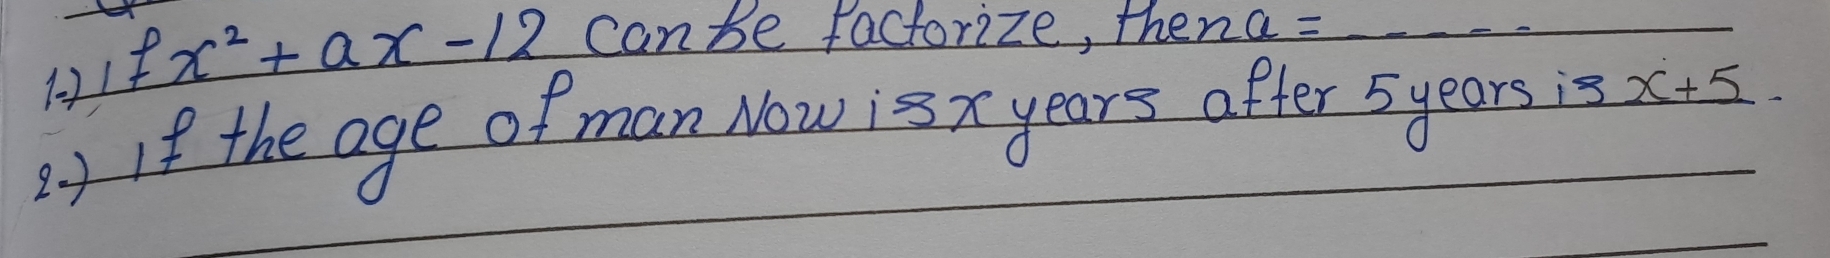 1.) If x² + ax - 12 can be factorize, then a = -----
2.) If the age of man Now is x years after 5 years is x+5.